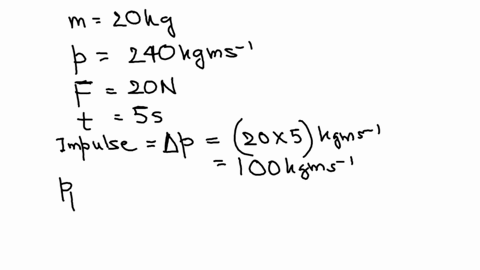 m = 20kg
p = 240kgms⁻¹
F = 20N
t = 5s
Impulse = Δp = (20×5) kgms⁻¹
= 100kgms⁻¹
p₁